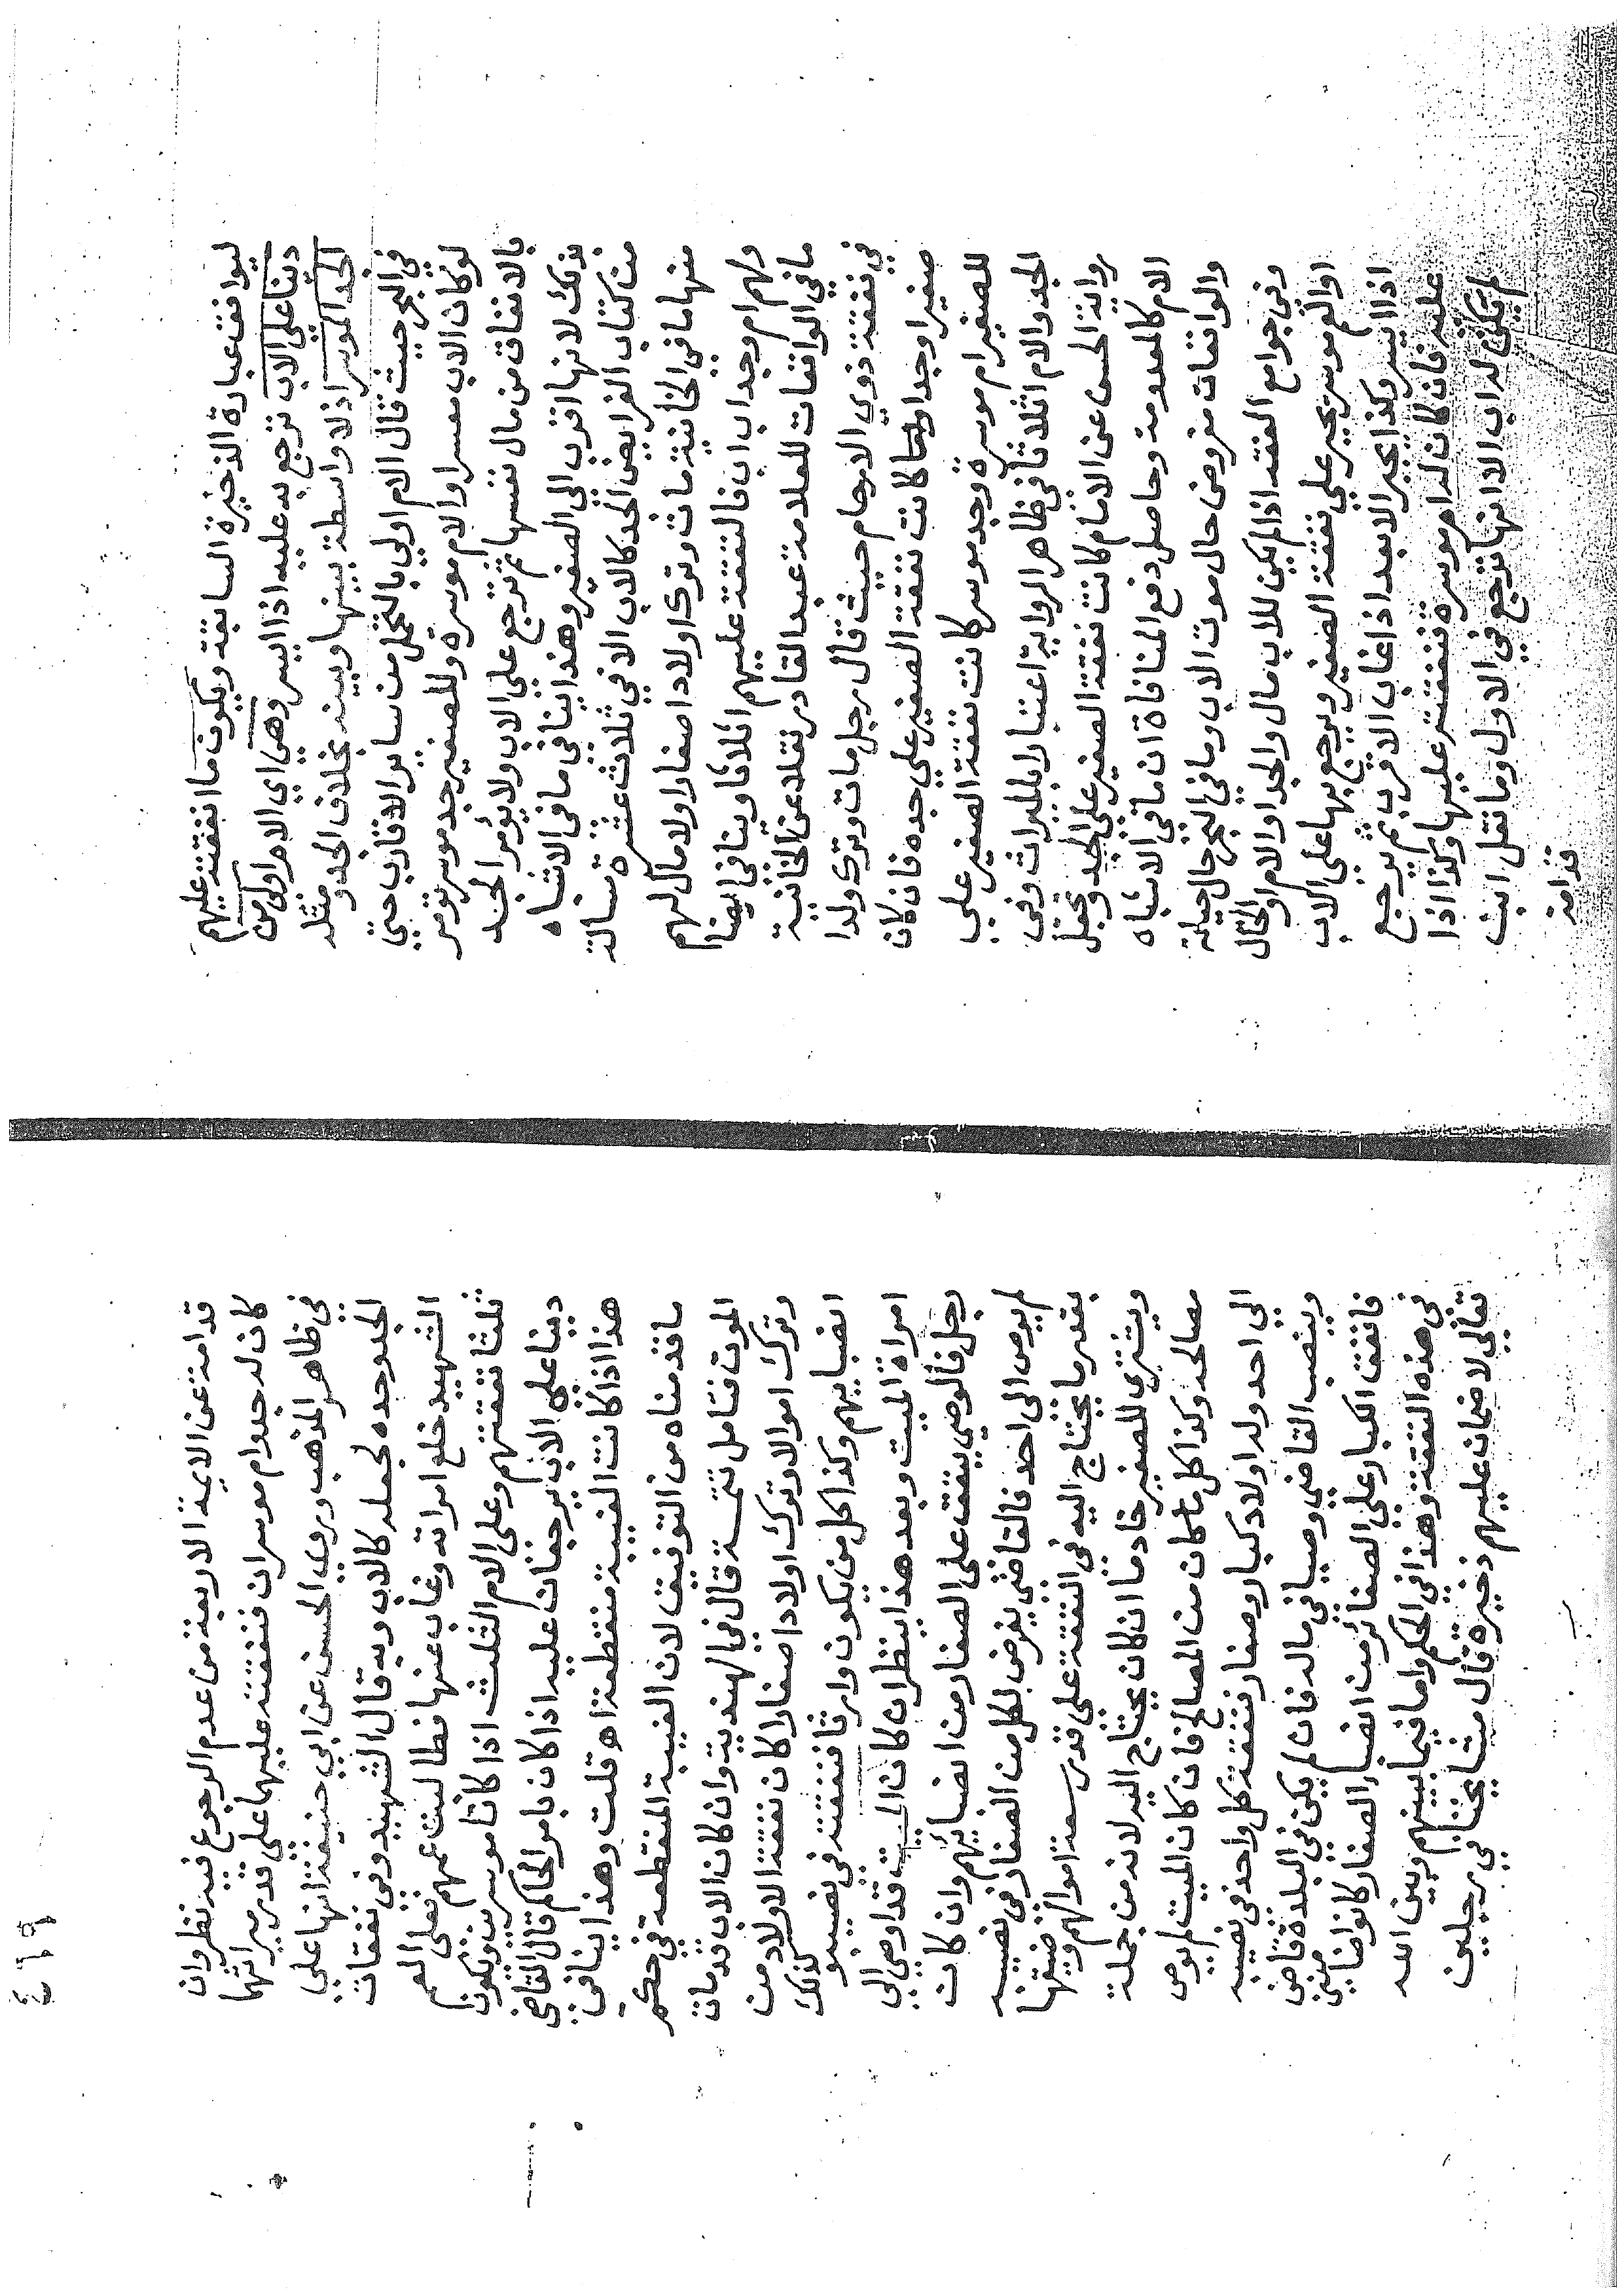 ليوافق عبارة الذخيرة السابقة ويكون ما انفقته عليهم
دينا على الاب ترجع به عليه اذا ايسر وهي اي الام اولى من
الجد الموسر اذ لا واسطة بينها وبينه بخلاف الجد ومثله
في البحر حيث قال الام اولي بالتحمل من ساير الاقارب حتي
لو كان الاب معسرا والام موسرة وللصغير جد موسر تومر
بالانفاق من مال نفسها ثم ترجع علي الاب ولا يؤمر الجد
بذلك لانها اقرب الي الصغير وهذا ينافي ما في الاشباه
من كتاب الفرايض الجد كالاب الا في ثلاث عشرة مسالة
منها ما في الخانية مات وترك اولادا صغارا ولا مال لهم
ولهم ام وجد اب اب فالنفقة عليهم اثلاثا وينافي ايضا
ما في الواقعات للعلامة عبد القادر نقلا عن الخانية
في نفقة ذوي الارحام حيث قال رجل مات وترك ولدا
صغيرا وجدا واما كانت نفقة الصغير علي جده فان كان
للصغير ام موسرة وجد موسر كانت نفقة الصغير علي
الجد والام اثلاثا في ظاهر الرواية اعتبارا بالميراث وفي
رواية الحسن عن الامام كانت نفقة الصغير علي الجد وتجعل
الام كالمعدومة وحاصل دفع المنافاة ان ما في الاشباه
والواقعات مفروض حال موت الاب وما في البحر حال حياته
وفي جوامع الفقه اذا لم يكن للاب مال والجد او الام او الخال
او العم موسر يجبر علي نفقة الصغير ويرجع بها علي الاب
اذا ايسر وكذا يجبر الابعد اذا غاب الاقرب ثم يرجع
عليه فان كان له ام موسرة فنفقته عليها وكذا اذا
لم يكن له اب الا انها ترجع في الاول وما نقل ابن
قدامة
٤١٩
قدامة عن الايمة الاربعة من عدم الرجوع فيه نظر وان
كان له جد وام موسران فنفقته عليهما علي قدر ميراثهما
في ظاهر المذهب وروي الحسن عن ابي حنيفة انها علي
الجد وحده لجعله كالاب وبه قال الشهيد وفي نفقات
الشهيد خلع امراته وغاب عنها فطالبت عمهم فعلي العم
ثلثا نفقتهم وعلى الام الثلث اذا كانا موسرين وتكون
دينا علي الاب يرجعان عليه اذا كان بامر الحاكم قال القاضي
هذا اذا كانت الغيبة منقطعة اه قلت وهذا ينافي
ما قدمناه من التوفيق لان الغيبة المنقطعة في حكم
الموت فتامل تتمسة قال في الهندية وان كان الاب قد مات
وترك اموالا وترك اولادا صغارا كان نفقة الاولاد من
انصبايهم وكذا كل من يكون وارثا فنفقته في نصيبه وكذلك
امراة الميت وبعد هذا ينظر ان كان الميت قد اوصي الي
رجل فالوصي ينفق علي الصغار من انصبائهم وان كان
لم يوص الى احد فالقاضي يفرض لكل من الصغار في نصيبه
بقدر ما يحتاج اليه في النفقة علي قدر سعة اموالهم وضيقها
ويشتري للصغير خادما ان كان يحتاج اليه لانه من جملة
مصالحه وكذا كل ما كان من المصالح فان كان الميت لم يوص
الي احد وله اولاد كبار وصغار فنفقة كل واحد في نصيبه
وينصب القاضي وصيا في ماله فان لم يكن في البلدة قاض
فانفق الكبار علي الصغار من انصباء الصغار كانوا ضامنين
في هذه النفقة وهذا في الحكم واما فيما بينهم وبين الله
تعالي لا ضمان عليهم ذخيرة قال مشايخنا في رجلين